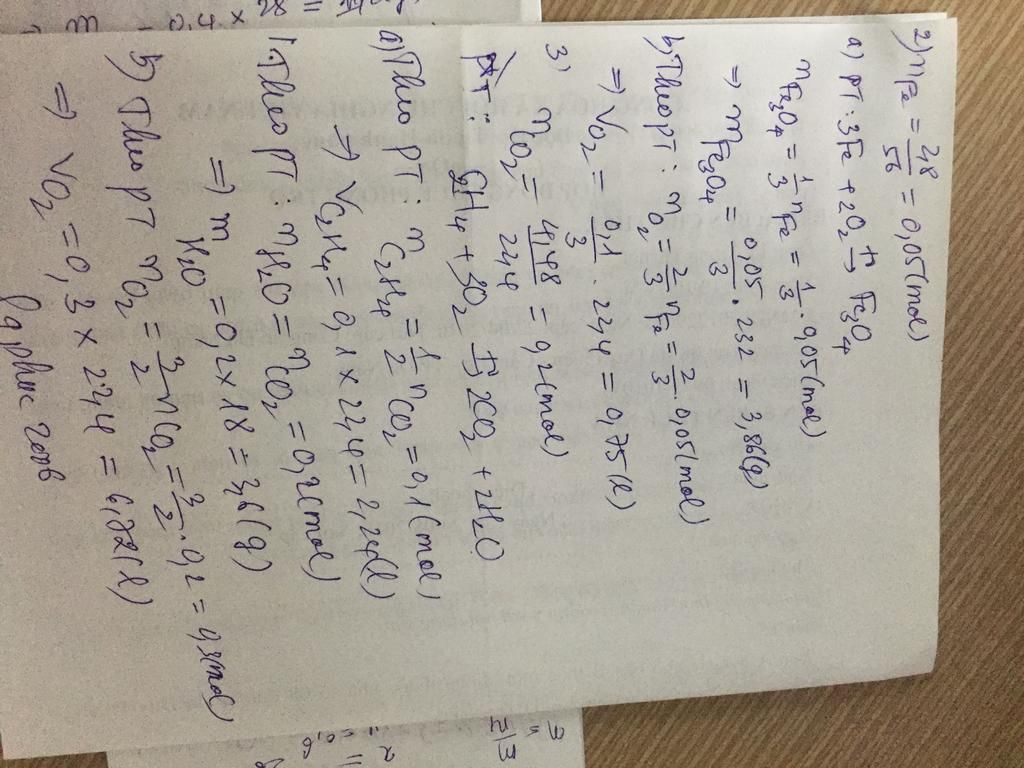 2) nFe = 2,8/56 = 0,05 (mol)
a) PT: 3Fe + 2O2 t°→ Fe3O4
nFe3O4 = 1/3 nFe = 1/3 . 0,05 (mol)
⇒ mFe3O4 = 0,05/3 . 232 = 3,86 (g)
b) Theo PT: nO2 = 2/3 nFe = 2/3 . 0,05 (mol)
⇒ VO2 = 0,1/3 . 22,4 = 0,75 (l)
3) nCO2 = 4,48/22,4 = 0,2 (mol)
PT: C2H4 + 3O2 t°→ 2CO2 + 2H2O
a) Theo PT: nC2H4 = 1/2 nCO2 = 0,1 (mol)
⇒ VC2H4 = 0,1 x 22,4 = 2,24 (l)
Theo PT nH2O = nCO2 = 0,2 (mol)
⇒ mH2O = 0,2 x 18 = 3,6 (g)
b) Theo PT nO2 = 3/2 nCO2 = 3/2 . 0,2 = 0,3 (mol)
⇒ VO2 = 0,3 x 22,4 = 6,72 (l)